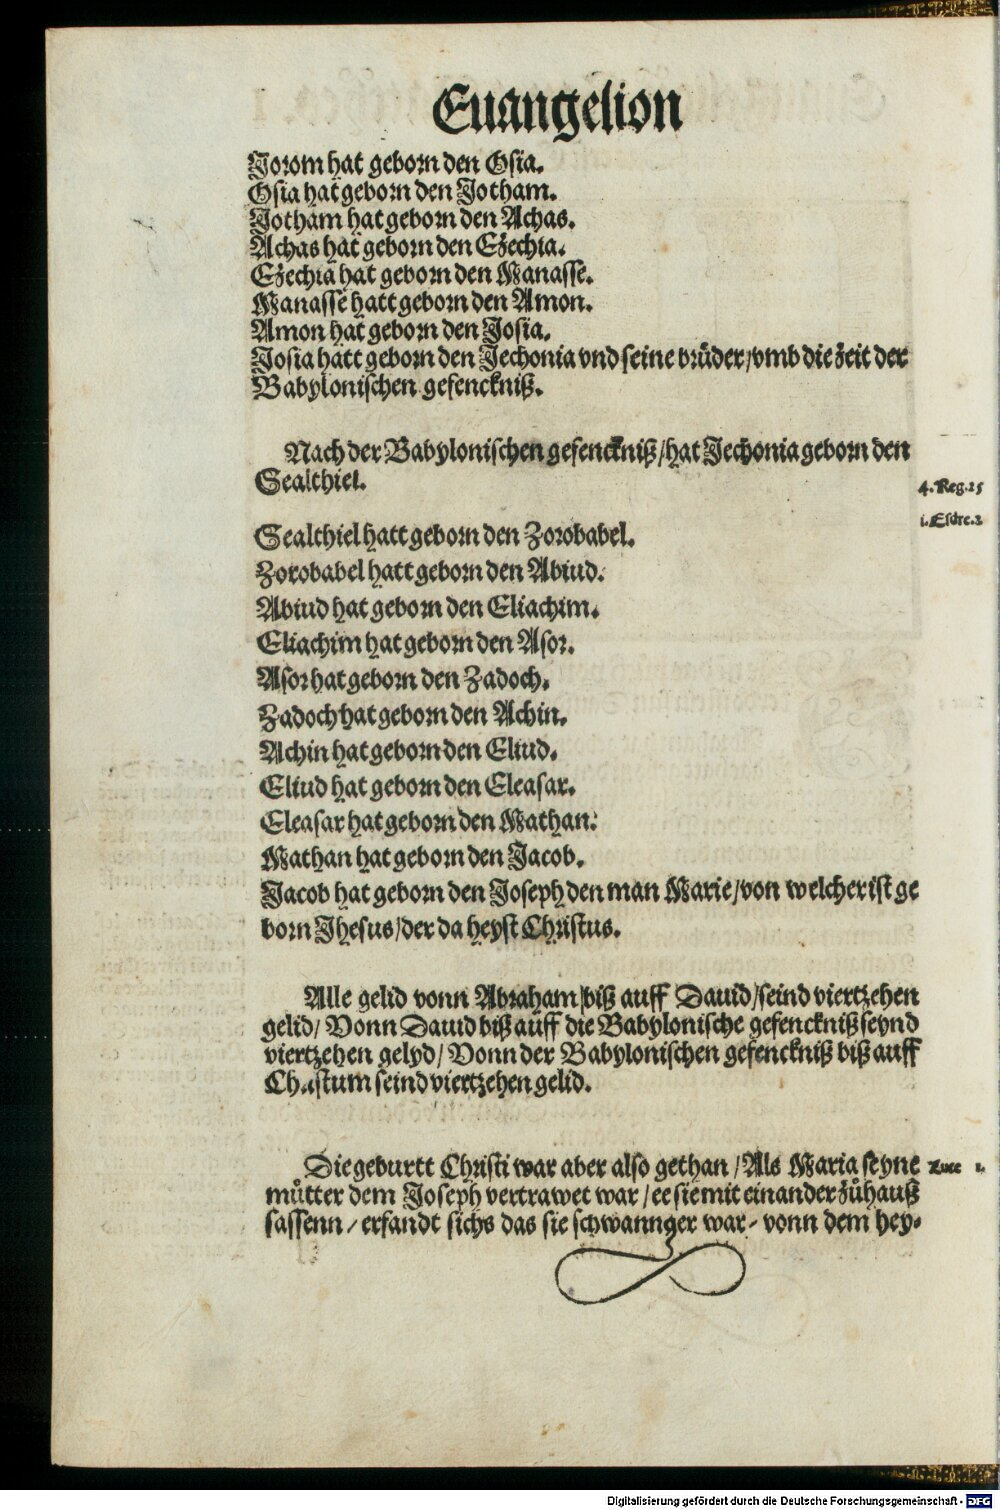 Euangelion
Jorom hat geborn den Osia.
Osia hat geborn den Jotham.
Jotham hat geborn den Achas.
Achas hat geborn den Ezechia.
Ezechia hat geborn den Manasse.
Manasse hatt geborn den Amon.
Amon hat geborn den Josia.
Josia hatt geborn den Jechonia vnd seine brüder/vmb die zeit der
Babylonischen gefenckniß.
Nach der Babylonischen gefenckniß/hat Jechonia geborn den
Sealthiel.
4. Reg.25
i. Esdre.3
Sealthiel hatt geborn den Zorobabel.
Zorobabel hatt geborn den Abiud.
Abiud hat geborn den Eliachim.
Eliachim hat geborn den Asor.
Asor hat geborn den Zadoch.
Zadoch hat geborn den Achin.
Achin hat geborn den Eliud.
Eliud hat geborn den Eleasar.
Eleasar hat geborn den Mathan.
Mathan hat geborn den Jacob.
Jacob hat geborn den Joseph den man Marie/von welcher ist ge
born Jhesus/der da heyst Christus.
Alle gelid vonn Abraham/biß auff Dauid/seind viertzehen
gelid/ Vonn Dauid biß auff die Babylonische gefenckniß seynd
viertzehen gelyd/ Vonn der Babylonischen gefenckniß biß auff
Christum seind viertzehen gelid.
Die geburtt Christi war aber also gethan/Als Maria seyne
Luce 1.
mütter dem Joseph vertrawet war/ee sie mit einander zů hauß
sassenn/erfandt sichs das sie schwannger war/vonn dem hey-
Digitalisierung gefördert durch die Deutsche Forschungsgemeinschaft - DFG